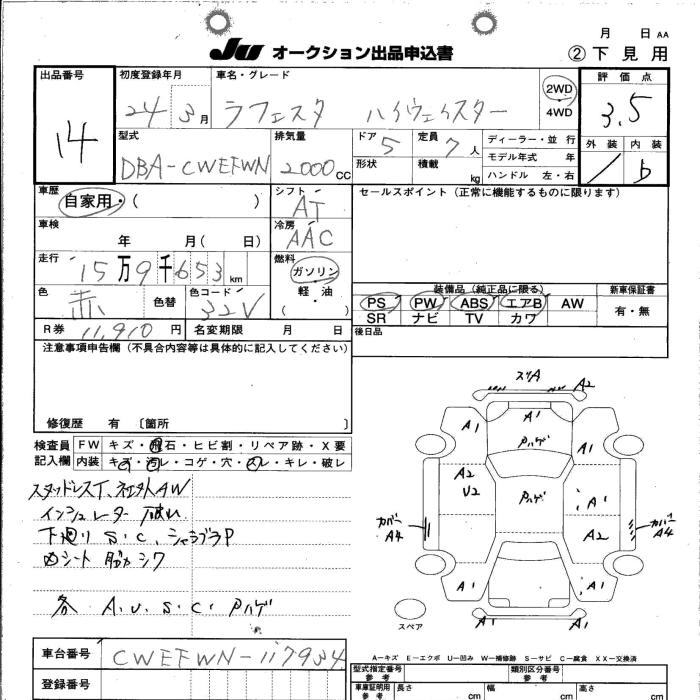 月 日 AA
JU オークション出品申込書 ②下見用
出品番号 初度登録年月 車名・グレード 2WD 評価点
14 24 3月 ラフェスタ ハイウェイスター 4WD 3.5
型式 排気量 ドア 5 定員 7人 ディーラー・並行 外装 内装
DBA-CWEFWN 2000cc 形状 積載 kg モデル年式 年 b
ハンドル 左・右
車歴 自家用・( ) シフト AT セールスポイント(正常に機能するものに限ります)
車検 年 月( 日) 冷房 AAC
走行 15万9千653km 燃料 ガソリン 軽・油 ( )
装備品(純正品に限る) 新車保証書
色 赤 色替 色コード 32V PS PW ABS エアB AW 有・無
SR ナビ TV カワ
R券 11,910円 名変期限 月 日 後日品
注意事項申告欄(不具合内容等は具体的に記入してください)
修復歴 有 〔箇所 〕
検査員記入欄 FW キズ・飛石・ヒビ割・リペア跡・X要
内装 キズ・汚レ・コゲ・穴・スレ・キレ・破レ
スタッドレスT、社外AW
インシュレーター破れ
下廻りS・C、シャシブラP
内シート シワ
各 A.U.S.C.Pハゲ
スリA A2
A1 A1 A1
Pハゲ
A2 U2 Pハゲ A1
カバーA4 A2 カバーA4
A1 A1
A1 A1
スペア
A-キズ E-エクボ U-凹み W-補修跡 S-サビ C-腐食 XX-交換済
車台番号 CWEFWN-117934
登録番号
型式指定番号 参考 類別区分番号 参考
車庫証明用 参考 長さ cm 幅 cm 高さ cm